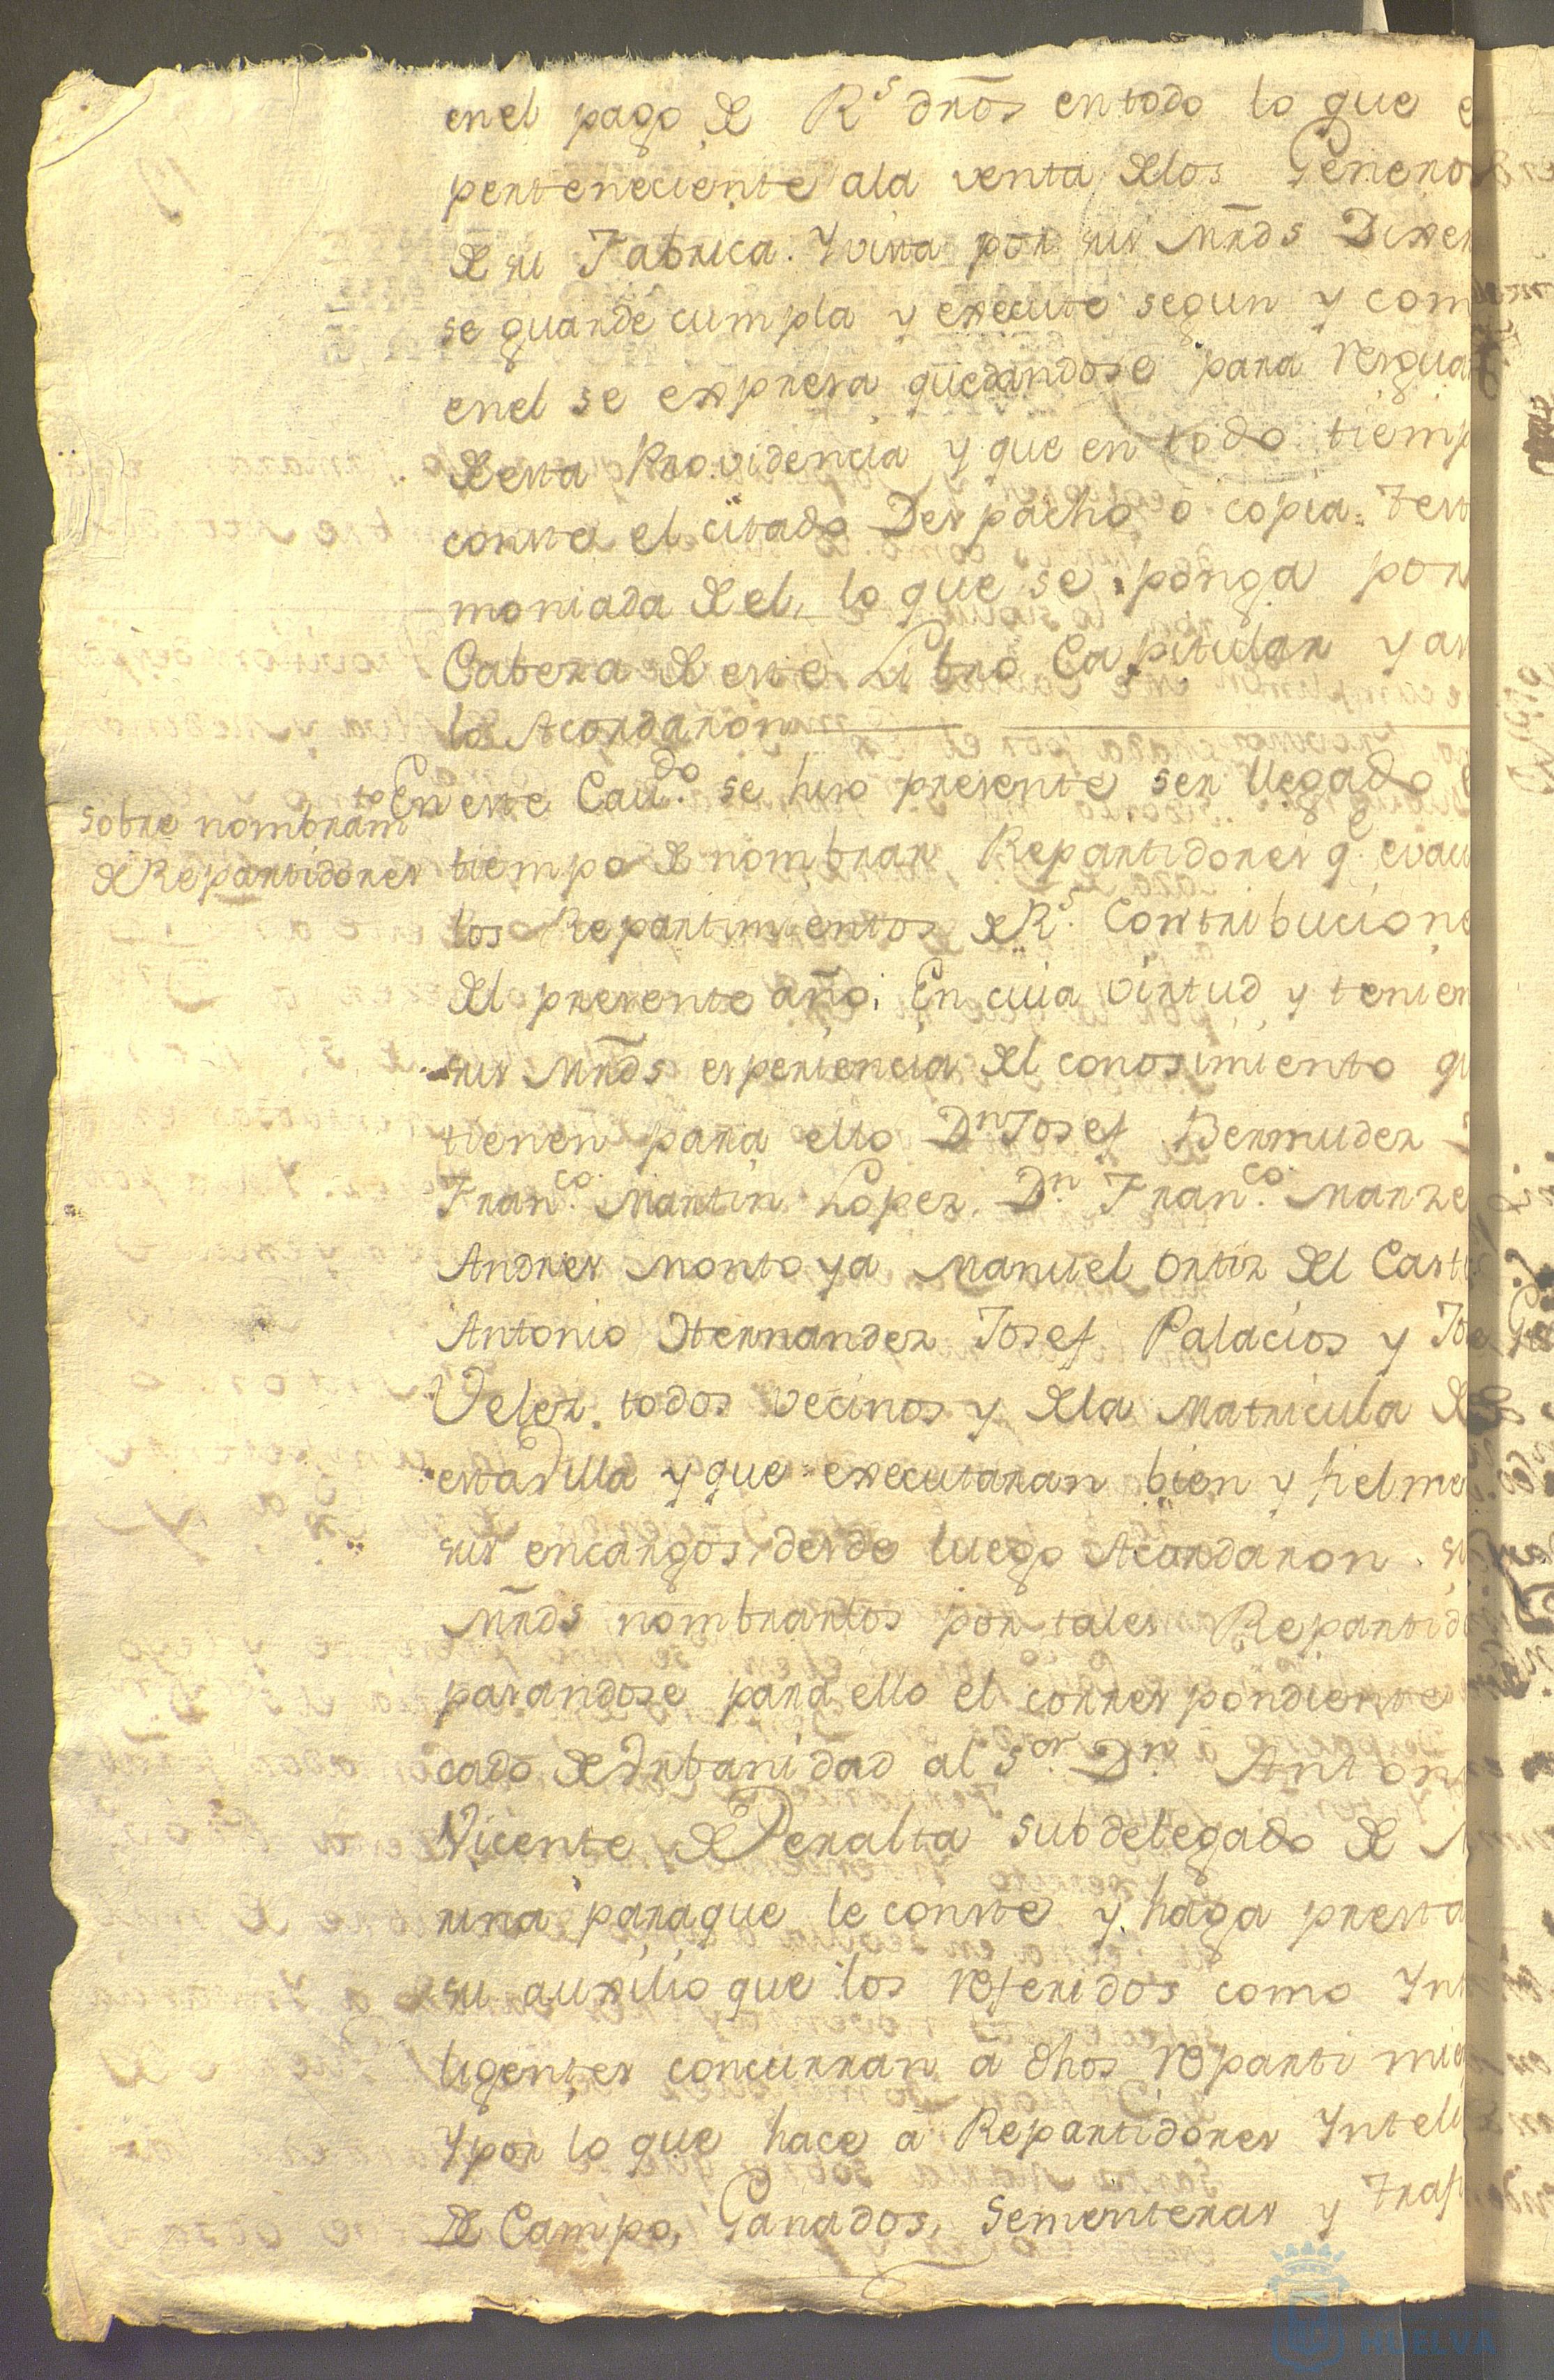 en el pago de Rs dros en todo lo que e
perteneciente ala venta delos Generos
de su Fabrica. Y vista por sus Mrds Dixer
se guarde cumpla y execute segun y com
enel se expresa quedandose para resgua
de esta Providencia y que en todo tiemp
conste el citado Despacho, ó copia testi
moniada del, lo que se ponga por
Cabeza de este Libro Capitular y asi
lo Acordaron
En este Cavdo. se hiso presente ser llegado e
sobre nombramto
de Repartidores
tiempo de nombrar Repartidores qe evacu
los Repartimientos de Rs. Contribucione
del presente año. En cuia virtud y tenien
sus Mrds esperiencia del conosimiento qu
tienen para ello Dn Josef Bermudez
Franco. Martin Lopez. Dn. Franco. Marze
Andres Montoya Manuel Ortiz del Casti
Antonio Hernandez Josef Palacios y Jo
Velez. todos vecinos y dela Matricula de
esta Villa y que executaran bien y fielme
sus encargos, desde luego Acordaron su
Mrds nombrarlos por tales Repartido
pasandose para ello el correspondiente
cado de Urbanidad al Sor. Dn. Anton
Vicente de Peralta subdelegado de M
rina para que le conste y haga presta
su auxilio que los referidos como Ynte
ligentes concurran a dhos repartimie
Y por lo que hace a Repartidores Yntelig
de Campo, Ganados, Sementeras y Trafi
HUELVA